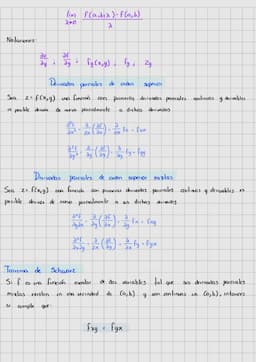 lim f(a,b+λ)-f(a,b)
λ→0 λ
Notaciones:
∂z/∂y ; ∂f/∂y ; fy(x,y) ; fy ; zy
Derivadas parciales de orden superior
Sea z=f(x,y) una función con primeras derivadas parciales continuas y derivables
es posible derivar de nuevo parcialmente a dichas derivadas
∂²f/∂x² = ∂/∂x (∂f/∂x) = ∂/∂x fx = fxx
∂²f/∂y² = ∂/∂y (∂f/∂y) = ∂/∂y fy = fyy
Derivadas parciales de orden superior mixtas
Sea z=f(x,y) una función con primeras derivadas parciales continuas y derivables es
posible derivar de nuevo parcialmente a dichas derivadas
∂²f/∂y∂x = ∂/∂y (∂f/∂x) = ∂/∂y fx = fxy
∂²f/∂x∂y = ∂/∂x (∂f/∂y) = ∂/∂x fy = fyx
Teorema de Schwarz
Si f es una función escalar de dos variables tal que sus derivadas parciales
mixtas existen en una vecindad de (a,b) y son continuas en (a,b), entonces
se cumple que:
fxy = fyx